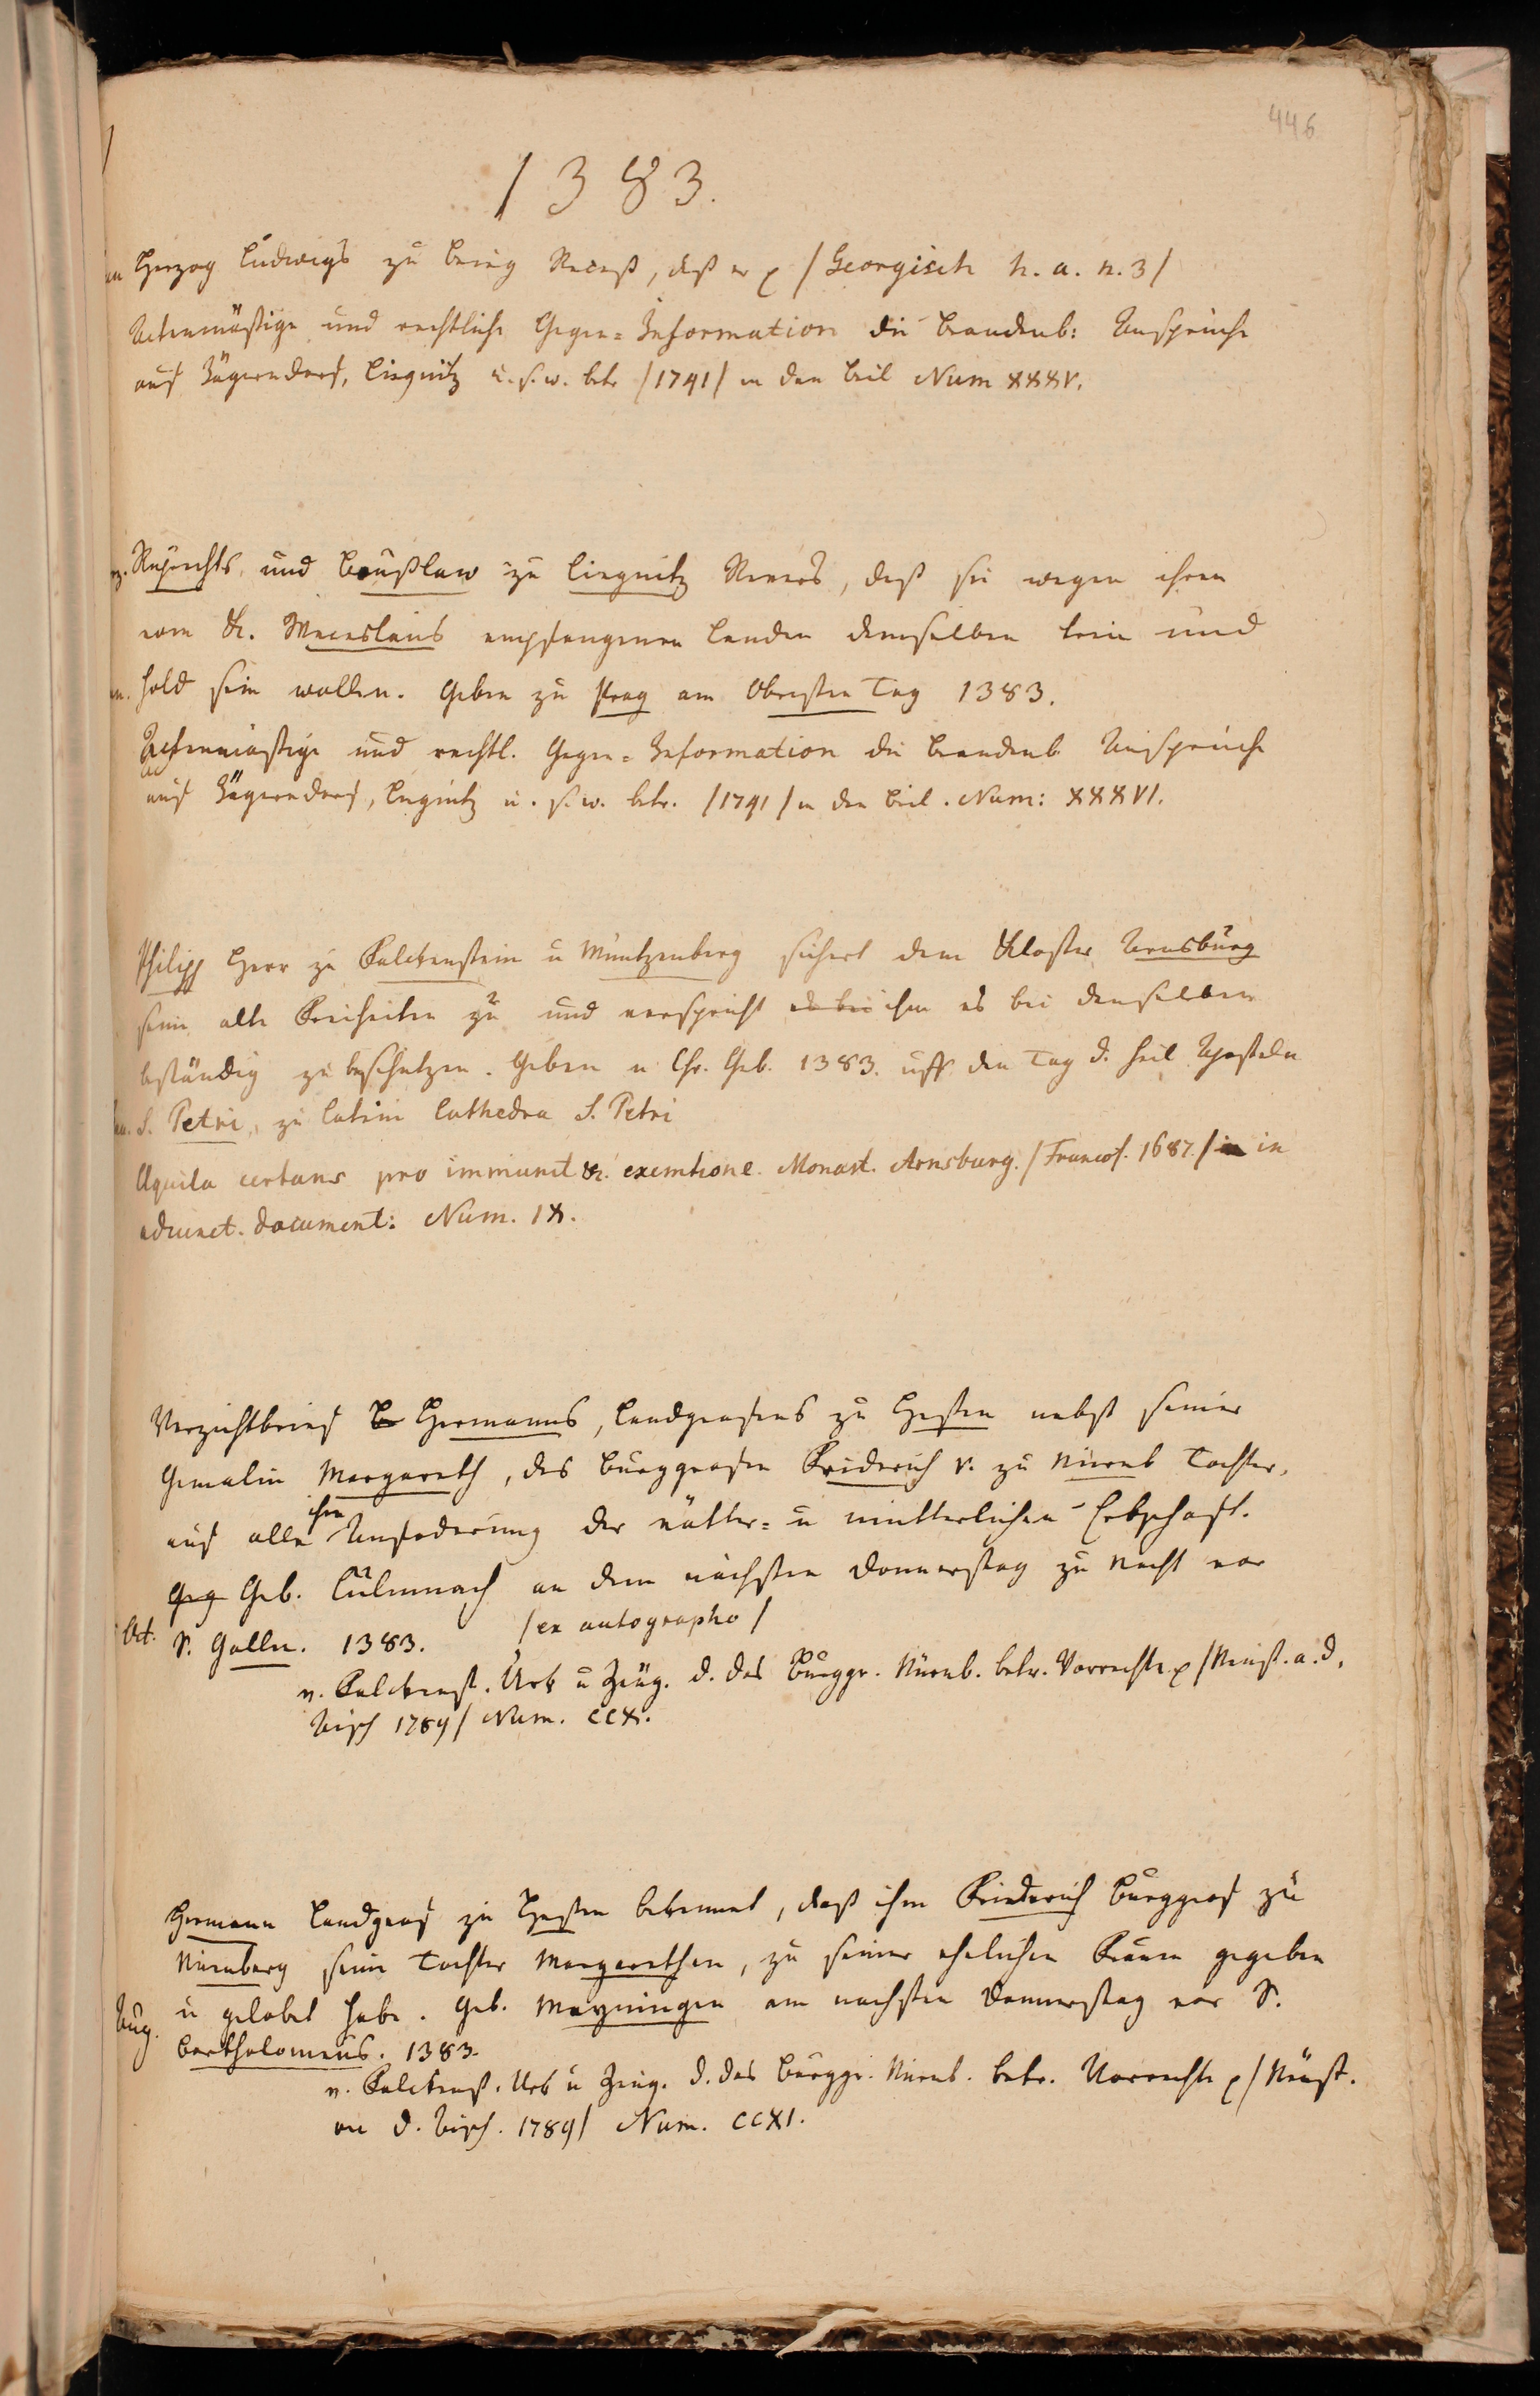 446
1383.
Herzog Ludwigs zu Brieg Recess, daß er p /Georgisch h. a. n. 3/
Actenmäßige und rechtliche Gegen=Information die Brandenb: Ansprüche
auf Jägerndorf, Liegnitz u. s. w. betr /1741/ in den Beil Num XXXV.
Ruprechts und Boußlaw zu Liegnitz Revers, daß sie wegen ihren
vom K. Wenceslaus empfangenen Landen demselben treu und
hold sein wollen. Geben zu Prag am Obersten Tag 1383.
Actenmäßige und rechtl. Gegen=Information die Brandenb Ansprüche
auf Jägerndorf, Liegnitz u. s. w. betr. /1741/ in den Beil. Num: XXXVI.
Philipp Herr zu Falckenstein u Müntzenberg sichert dem Kloster Arnsburg
seine alte Freiheiten zu und verspricht es bei ihm es bei denselben
beständig zu beschutzen. Geben n Chr. Geb. 1383. uff den Tag d. heil Aposteln
S. Petri, zu Latin Cathedra S. Petri
Aquila certans pro immunit &. exemtione Monast. Arnsburg. /Francof. 1687./ in
adiunct. document: Num. IX.
Verzichtbrief Hermanns, Landgrafens zu Hessen nebst seiner
Gemalin Margareth, des Burggrafen Friderich V. zu Nürnb Tochter,
auf alle ihre Anfoderung der vätter= u mutterlichen Erbschaft.
Geg Geb. Culmnach an dem nächsten Donnerstag zu Nacht vor
Oct. S. Galln. 1383. /ex autographo/
v. Falckenst. Urk u Zeug. d. des Burggr. Nürnb. betr. Vorrechte p /Neust. a. d.
Aisch 1789/ Num. CCX.
Hermann Landgraf zu Hessen bekennet, daß ihm Friederich Burggraf zu
Nürnberg seine Tochter Margarethen, zu seiner ehelichen Frauen gegeben
Aug. u gelobet habe. Geb. Meyningen am nachsten Donnerstag vor S.
Bartholomeus. 1383.
v. Falckenst. Urk u Zeug. d. des Burggr. Nürnb. betr. Vorrechte p /Neust.
an d. Aisch. 1789/ Num. CCXI.